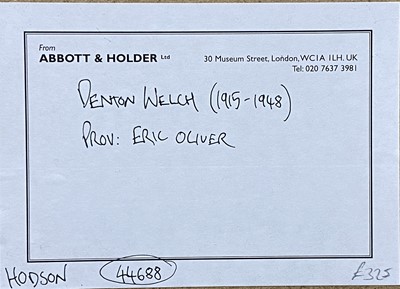 From
ABBOTT & HOLDER Ltd
30 Museum Street, London, WC1A 1LH. UK
Tel: 020 7637 3981
DENTON WELCH (1915-1948)
PROV: ERIC OLIVER
HODSON
44688
£325